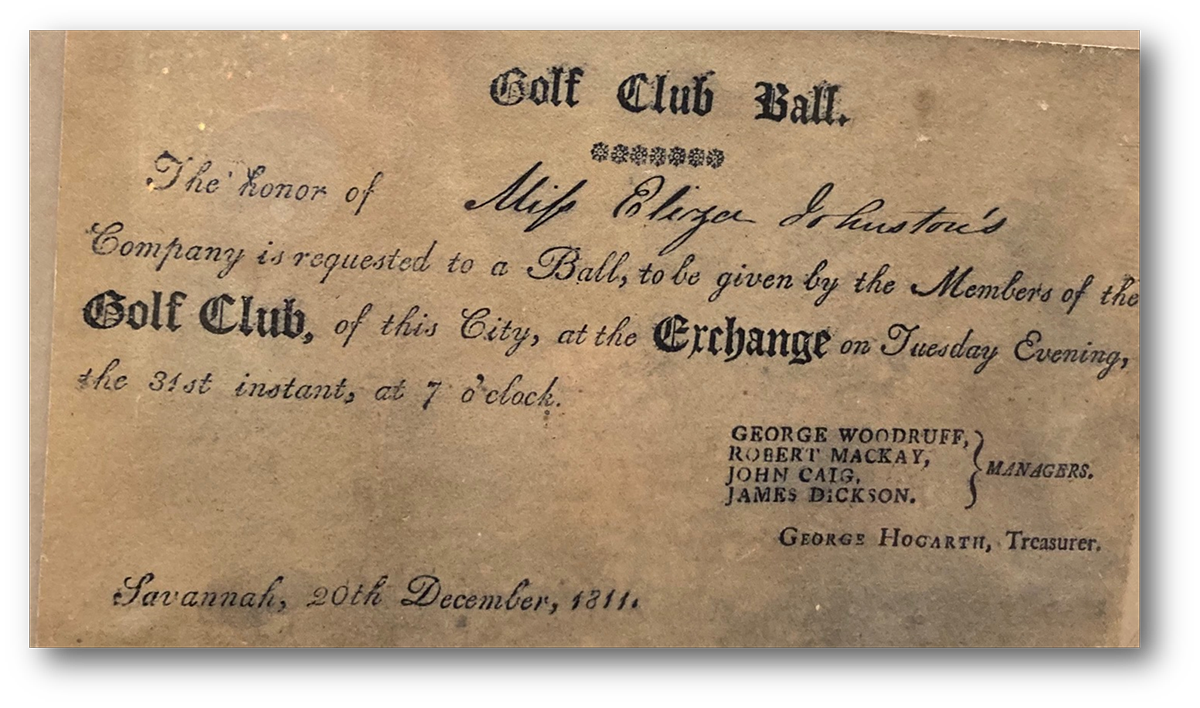 Golf Club Ball.
The honor of Miſs Eliza Johnston's
Company is requested to a Ball, to be given by the Members of the
Golf Club, of this City, at the Exchange on Tuesday Evening,
the 31st instant, at 7 o'clock.
GEORGE WOODRUFF,
ROBERT MACKAY,
JOHN CAIG,
JAMES DICKSON.
} MANAGERS.
GEORGE HOGARTH, Treasurer.
Savannah, 20th December, 1811.